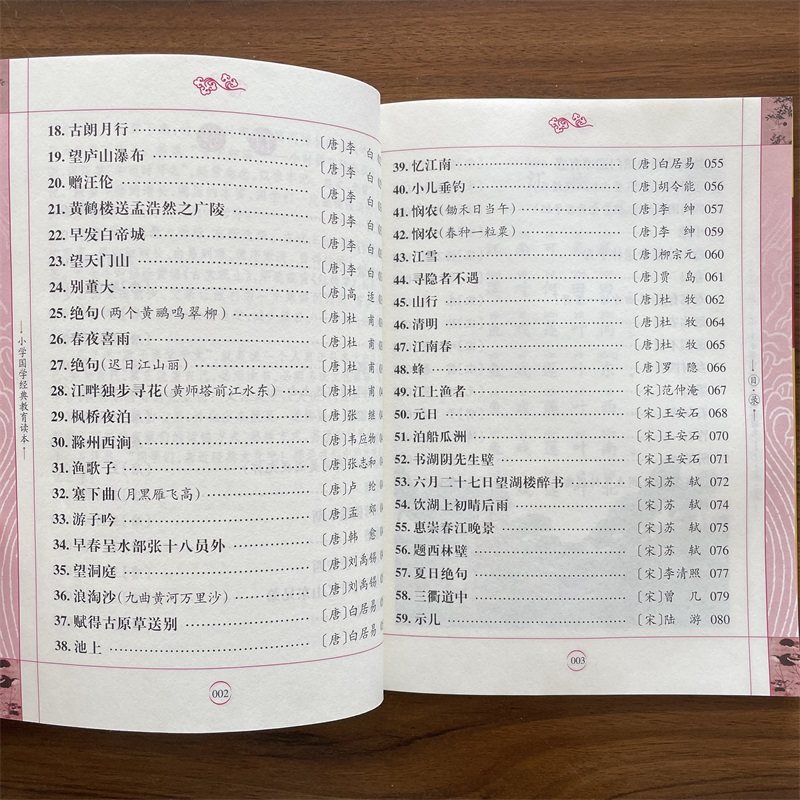 小学国学经典教育读本
18. 古朗月行 〔唐〕李 白
19. 望庐山瀑布 〔唐〕李 白
20. 赠汪伦 〔唐〕李 白
21. 黄鹤楼送孟浩然之广陵 〔唐〕李 白
22. 早发白帝城 〔唐〕李 白
23. 望天门山 〔唐〕李 白
24. 别董大 〔唐〕高 适
25. 绝句(两个黄鹂鸣翠柳) 〔唐〕杜 甫
26. 春夜喜雨 〔唐〕杜 甫
27. 绝句(迟日江山丽) 〔唐〕杜 甫
28. 江畔独步寻花(黄师塔前江水东) 〔唐〕杜 甫
29. 枫桥夜泊 〔唐〕张 继
30. 滁州西涧 〔唐〕韦应物
31. 渔歌子 〔唐〕张志和
32. 塞下曲(月黑雁飞高) 〔唐〕卢 纶
33. 游子吟 〔唐〕孟 郊
34. 早春呈水部张十八员外 〔唐〕韩 愈
35. 望洞庭 〔唐〕刘禹锡
36. 浪淘沙(九曲黄河万里沙) 〔唐〕刘禹锡
37. 赋得古原草送别 〔唐〕白居易
38. 池上 〔唐〕白居易
002
39. 忆江南 〔唐〕白居易 055
40. 小儿垂钓 〔唐〕胡令能 056
41. 悯农(锄禾日当午) 〔唐〕李 绅 057
42. 悯农(春种一粒粟) 〔唐〕李 绅 059
43. 江雪 〔唐〕柳宗元 060
44. 寻隐者不遇 〔唐〕贾 岛 061
45. 山行 〔唐〕杜 牧 062
46. 清明 〔唐〕杜 牧 064
47. 江南春 〔唐〕杜 牧 065
48. 蜂 〔唐〕罗 隐 066
49. 江上渔者 〔宋〕范仲淹 067
50. 元日 〔宋〕王安石 068
51. 泊船瓜洲 〔宋〕王安石 070
52. 书湖阴先生壁 〔宋〕王安石 071
53. 六月二十七日望湖楼醉书 〔宋〕苏 轼 073
54. 饮湖上初晴后雨 〔宋〕苏 轼 074
55. 惠崇春江晚景 〔宋〕苏 轼 075
56. 题西林壁 〔宋〕苏 轼 076
57. 夏日绝句 〔宋〕李清照 077
58. 三衢道中 〔宋〕曾 几 079
59. 示儿 〔宋〕陆 游 080
003
目录